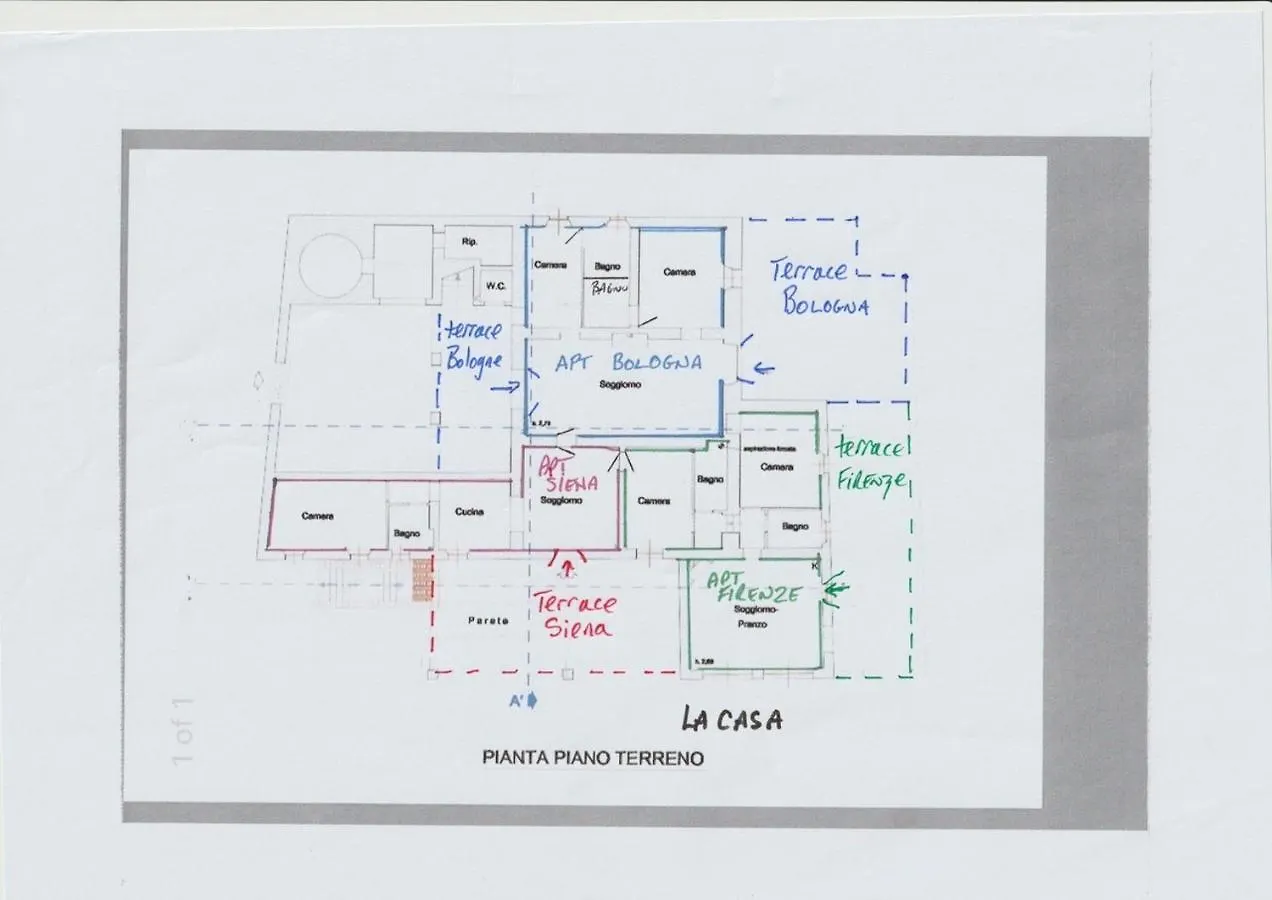 Rip.
W.C.
Camera
Bagno
BAGNO
Camera
Terrace
BOLOGNA
terrace
Bologne
APT BOLOGNA
Soggiorno
h. 2,70
APT
SIENA
Soggiorno
Camera
Bagno
Cucina
Camera
Bagno
aspirazione forzata
Camera
Bagno
terrace
FIRENZE
APT
FIRENZE
K
Soggiorno-
Pranzo
Terrace
Siena
Parete
A'
LA CASA
PIANTA PIANO TERRENO
1 of 1